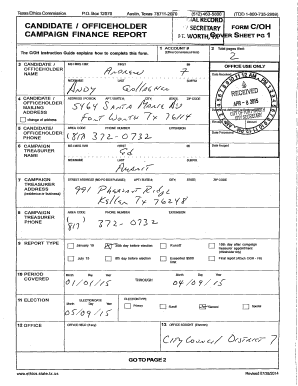 Texas Ethics Commission P.O. Box 12070 Austin, Texas 78711-2070 (512) 463-5800 (TDD 1-800-735-2989)
CANDIDATE / OFFICEHOLDER
CAMPAIGN FINANCE REPORT
FORM C/OH
COVER SHEET PG 1
The C/OH Instruction Guide explains how to complete this form.
1 ACCOUNT #
2 Total pages filed:
2
3 CANDIDATE / OFFICEHOLDER NAME
MS / MRS / MR FIRST MI
Andrew
OFFICE USE ONLY
NICKNAME LAST SUFFIX
Andy Gallagher
RECEIVED
APR - 8 2015
4 CANDIDATE / OFFICEHOLDER MAILING ADDRESS
change of address
ADDRESS / PO BOX; APT / SUITE #; CITY; STATE; ZIP CODE
5464 Santa Marie Av
Fort Worth TX 76114
5 CANDIDATE / OFFICEHOLDER PHONE
AREA CODE PHONE NUMBER EXTENSION
(817) 372-0732
6 CAMPAIGN TREASURER NAME
MS / MRS / MR FIRST MI
Ed
NICKNAME LAST SUFFIX
7 CAMPAIGN TREASURER ADDRESS
(residence or business)
STREET ADDRESS (NO PO BOX PLEASE); APT / SUITE #; CITY; STATE; ZIP CODE
991 Pheasant Ridge
Keller Tx 76248
8 CAMPAIGN TREASURER PHONE
AREA CODE PHONE NUMBER EXTENSION
(817) 372-0732
9 REPORT TYPE
January 15
30th day before election
Runoff
15th day after campaign treasurer appointment (officeholder only)
July 15
8th day before election
Exceeded $500 limit
Final report (Attach C/OH - FR)
10 PERIOD COVERED
Month Day Year Month Day Year
01/01/15 THROUGH 04/09/15
11 ELECTION
ELECTION DATE
Month Day Year
05/09/15
ELECTION TYPE
Primary Runoff General Special
12 OFFICE
OFFICE HELD (if any)
13 OFFICE SOUGHT (if known)
City Council District 7
GO TO PAGE 2
www.ethics.state.tx.us Revised 07/28/2014